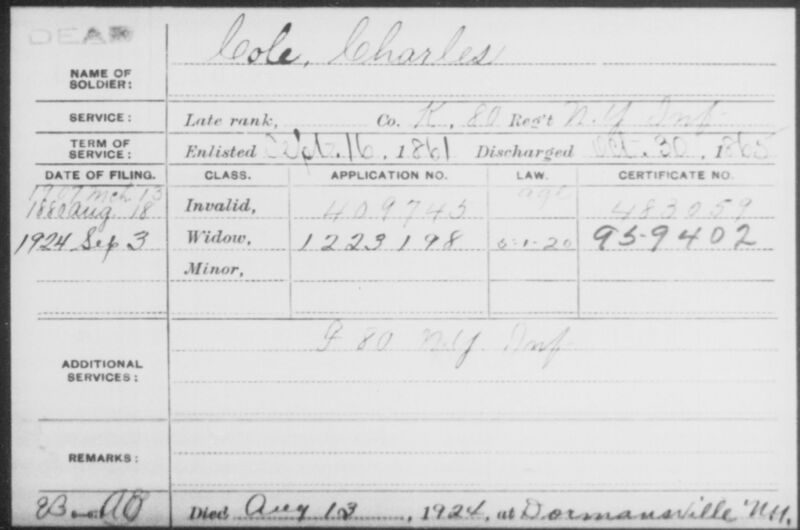 DEAD
Cole, Charles
NAME OF SOLDIER:
SERVICE: Late rank, Co. K, 80 Reg't N.Y. Inf
TERM OF SERVICE: Enlisted Sept. 16, 1861 Discharged Oct. 30, 1865
DATE OF FILING. CLASS. APPLICATION NO. LAW. CERTIFICATE NO.
1907 Mch 13 age
1880 Aug. 18 Invalid, 409745 483059
1924 Sep 3 Widow, 1223198 5-1-20 959402
Minor,
ADDITIONAL SERVICES: G 80 N.Y. Inf
REMARKS:
Died Aug 13, 1924, at Dormansville N.Y.